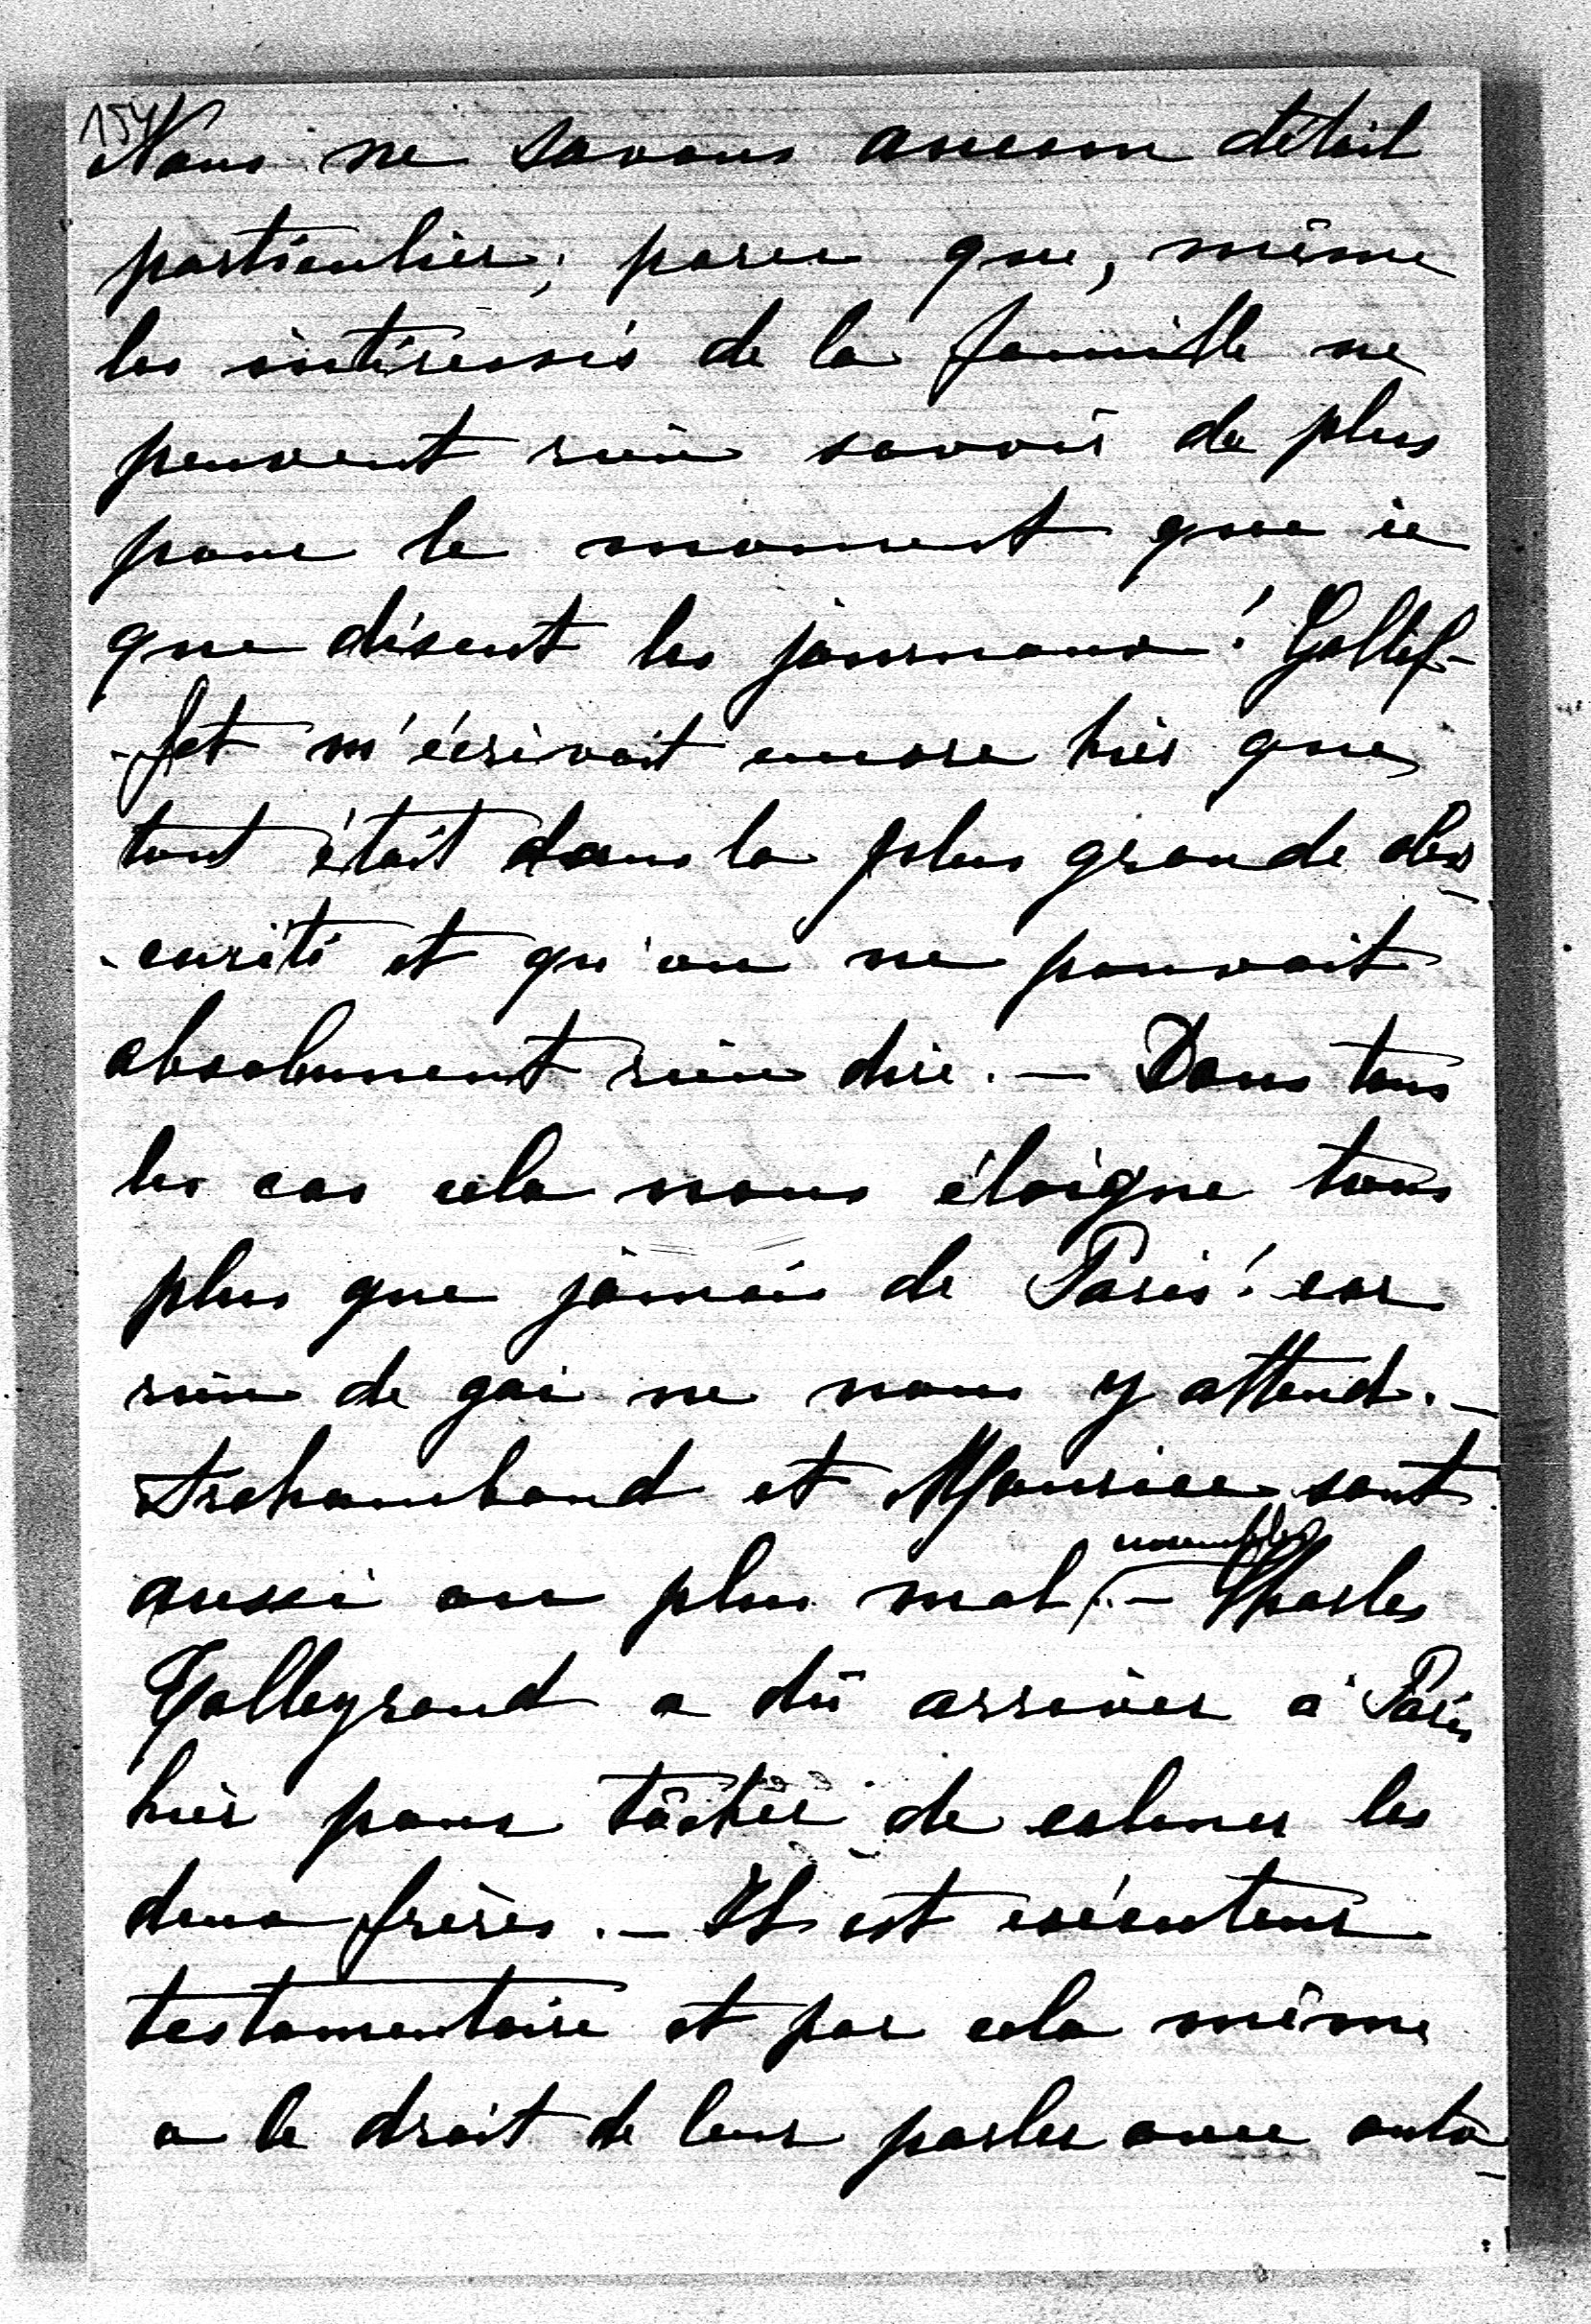 154
Nous ne savons aucun détail
particulier, parce que, même
les intéressés de la famille ne
peuvent rien savoir de plus
pour le moment que ce
que disent les journaux! Gallif-
-fet m'écrivait encore hier que
tout était dans la plus grande obs-
-curité et qu'on ne pouvait
absolument rien dire. — Dans tous
les cas cela nous éloigne tous
plus que jamais de Paris! car
rien de gai ne nous y attend. —
Archambaud et Maurice sont
aussi ou plus mal ensemble. — Charles
Talleyrand a dû arriver à Paris
hier pour tâcher de calmer les
deux frères. — Il est exécuteur
testamentaire et par cela même
a le droit de leur parler avec auto-